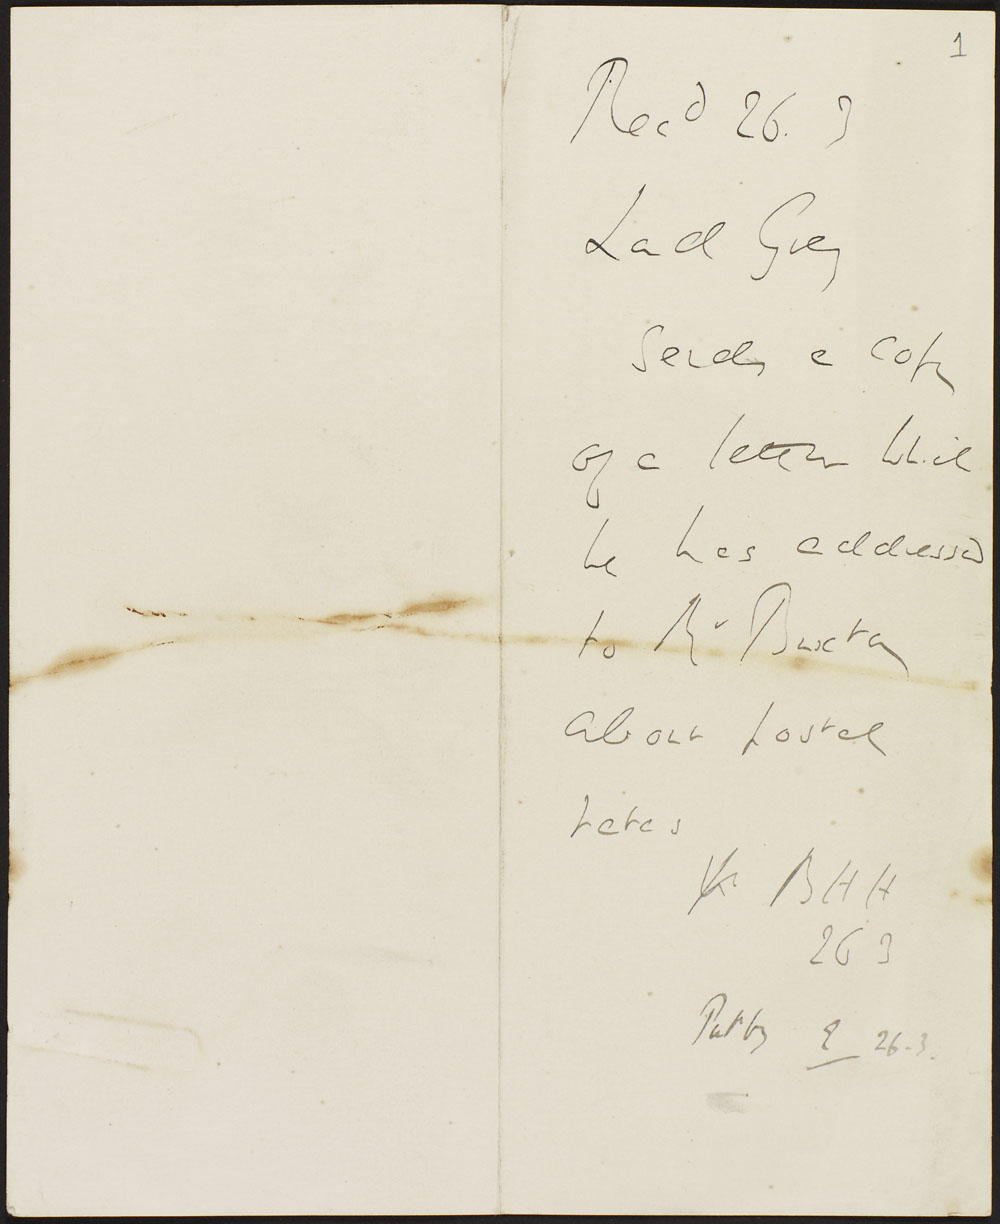 1
Recd 26. 3
Lord Grey
sends a copy
of a letter which
he has addressed
to Mr Buxton
about postal
rates
BHH
26 3
Put by E 26.3.